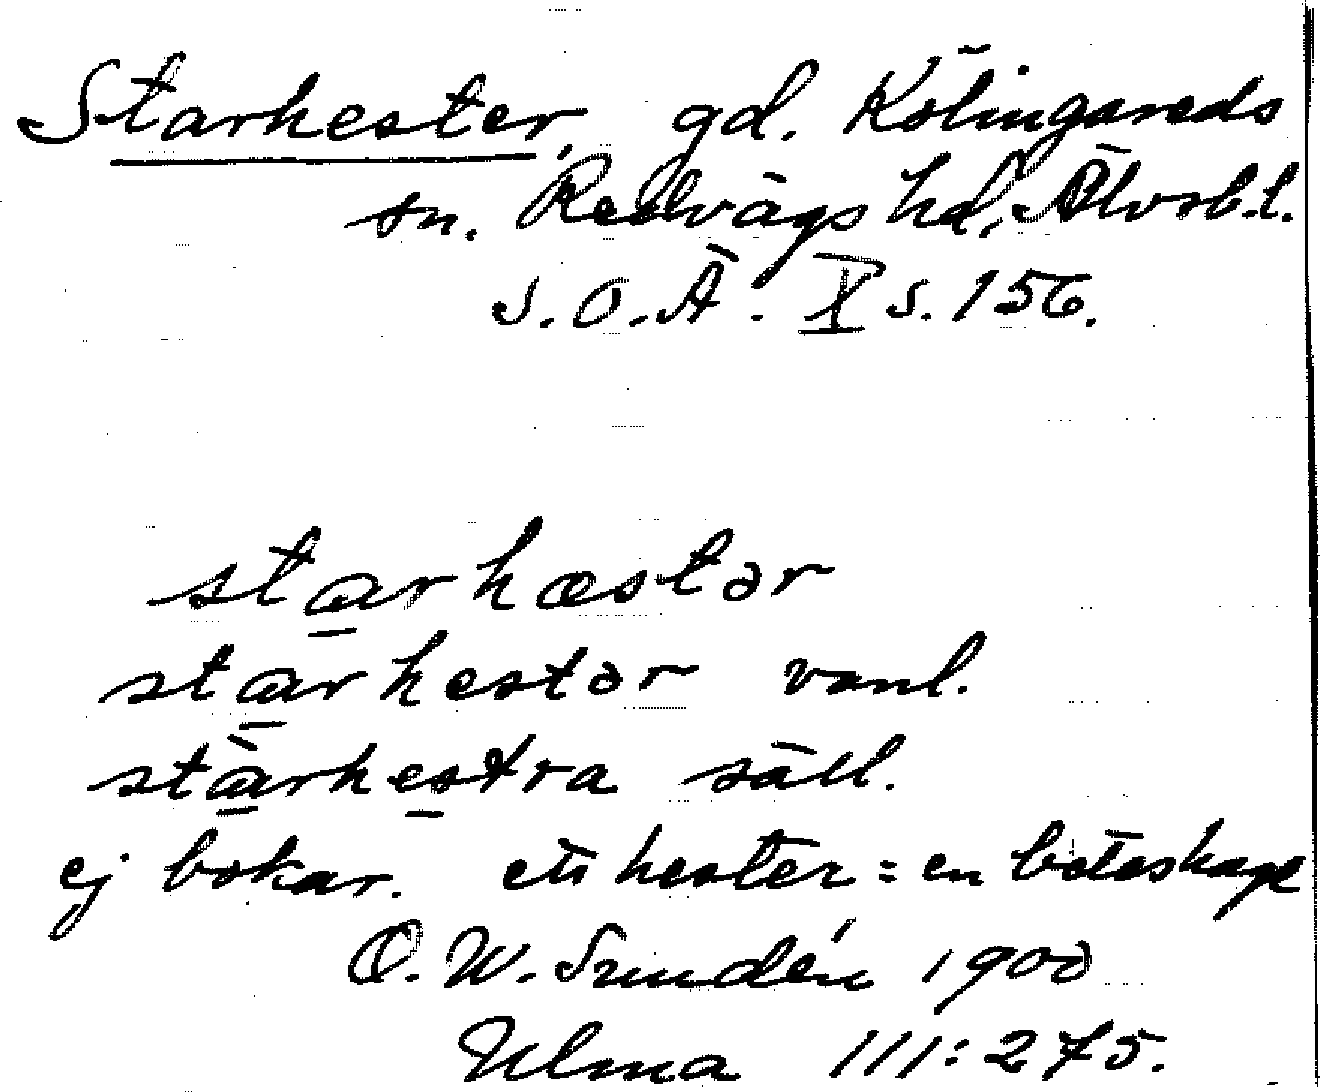 Starhester, gd. Kölingareds
sn. Redvägs hd, Älvsb.l.
S.O.Ä. X s. 156.
starhæstər
starhestər vanl.
stàrhestra säll.
ej bokar. ett hester = en
O.W. Sundén 1900
Ulma 111:275.